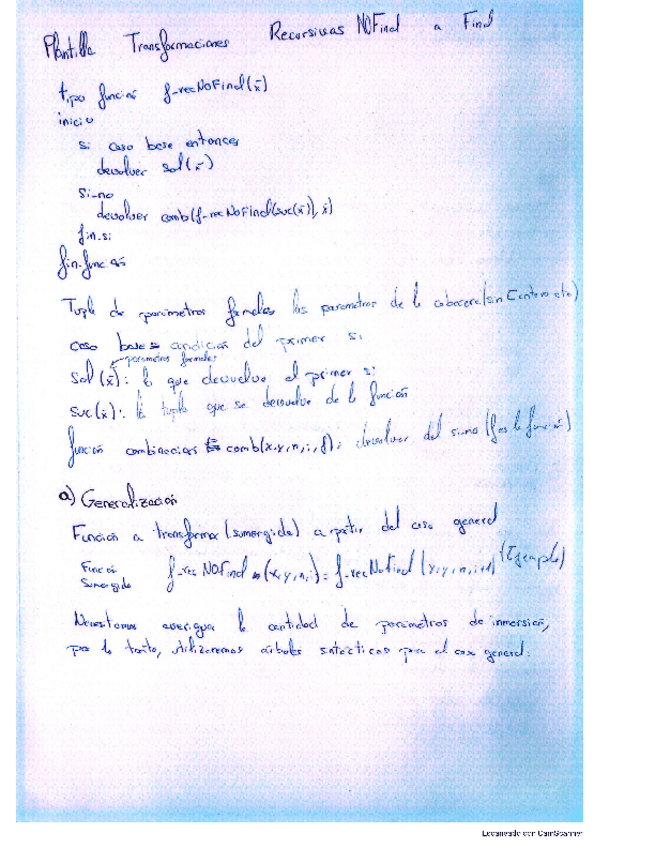 Plantilla Transformaciones Recursivas NOFinal a Final
tipo función f-recNoFinal(x̄)
inicio
si caso base entonces
devolver sol(x̄)
si-no
devolver comb(f-recNoFinal(suc(x̄)), x̄)
fin.si
fin.función
Tupla de parámetros formales los parametros de la cabecera (sin Entero etc)
caso base = condición del primer si
parametros formales
sol(x̄): lo que devuelve el primer si
suc(x̄): la tupla que se devuelve de la función
función combinación comb(x,y,n,i,f): devolver del sino (f es la función)
a) Generalización
Función a transformar (sumergida) a partir del caso general
Función Sumergida f-recNOFinal (x,y,n,i) = f-recNoFinal (x,y,n,i+1) (Ejemplo)
Necesitamos averiguar la cantidad de parámetros de inmersión,
por lo tanto, utilizaremos árboles sintácticos para el caso general:
Escaneado con CamScanner